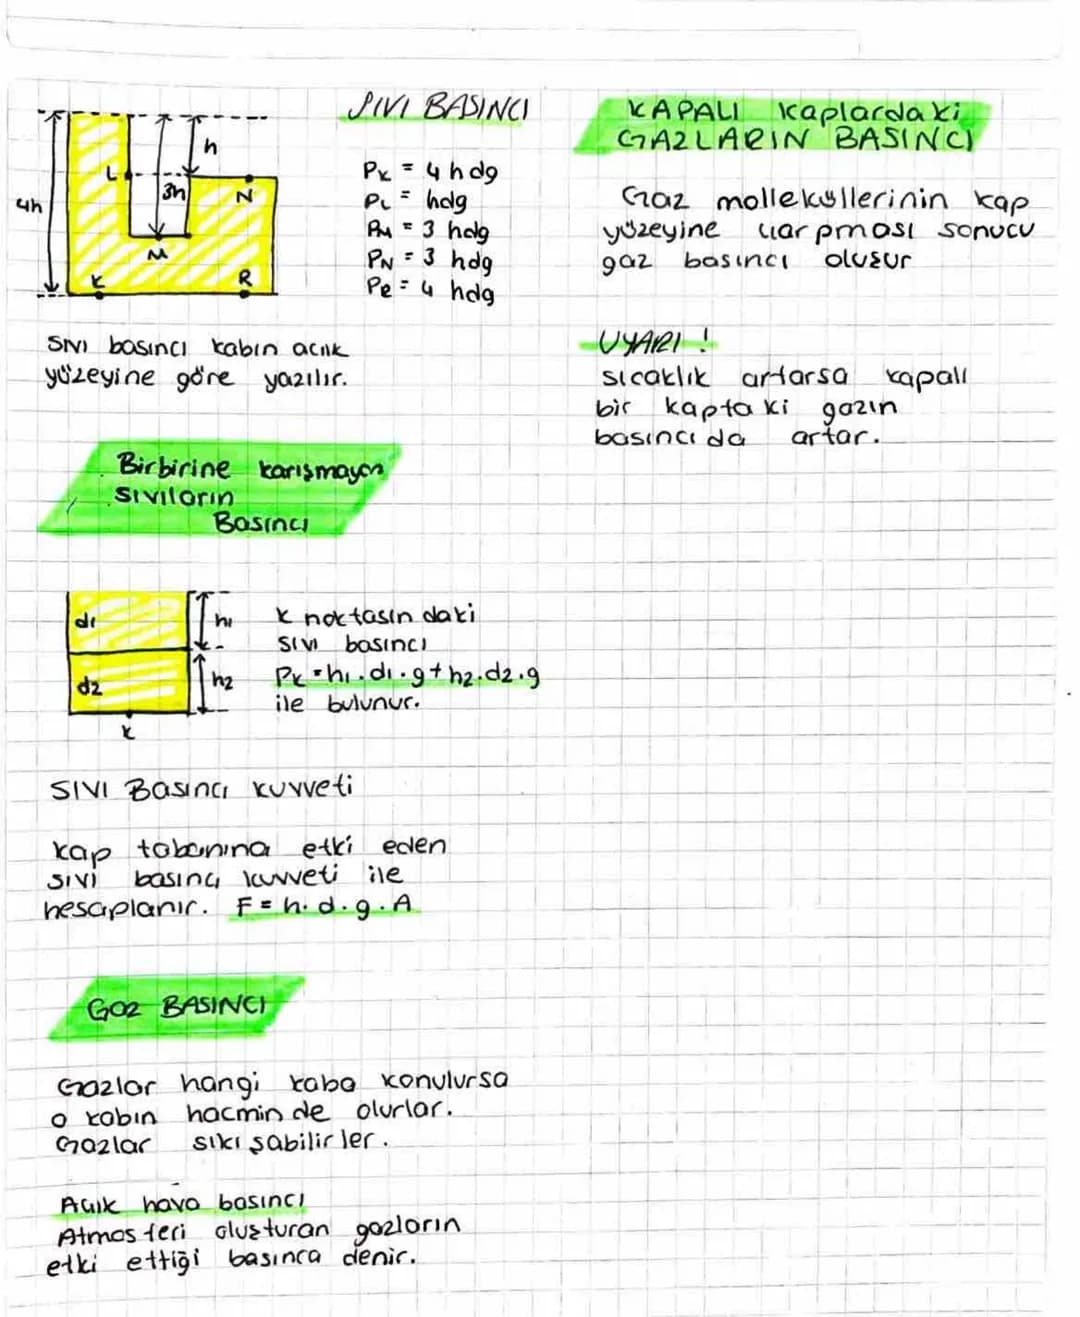 SIVI BASINCI
4h
h
3h
L
N
M
K
R
PK = 4hdg
PL = hdg
PM = 3 hdg
PN = 3 hdg
PR = 4 hdg
SIVI basıncı kabın acık
yüzeyine göre yazılır.
Birbirine karışmayan
sıvıların
Basıncı
d1
h1
d2
h2
K
K noktasın daki
sıvı basıncı
PK = h1.d1.g+h2.d2.g
ile bulunur.
SIVI Basıncı kuvveti
kap tabanına etki eden
sıvı basıncı kuvveti ile
hesaplanır. F = h.d.g.A
GAZ BASINCI
Gazlar hangi kaba konulursa
o kabın hacmin de olurlar.
Gazlar sıkışabilirler.
Açık hava basıncı
Atmosferi oluşturan gazların
etki ettiği basınca denir.
KAPALI Kaplardaki
GAZLARIN BASINCI
Gaz mollekullerinin kap
yüzeyine çarpması sonucu
gaz basıncı oluşur
UYARI!
sıcaklık artarsa kapalı
bir kaptaki gazın
basıncı da artar.